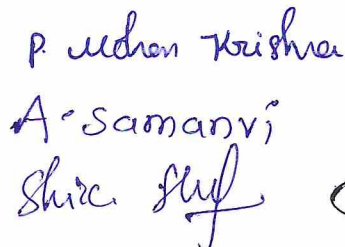 P. Mohan Krishna
A. Samanvi